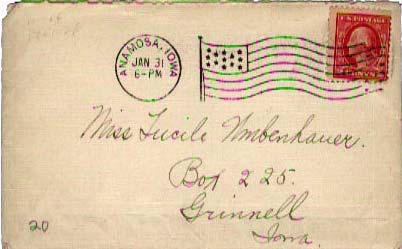 ANAMOSA, IOWA
JAN 31
6-PM
U.S. POSTAGE
Miss Lucile Umbenhauer.
Box 225.
Grinnell
Iowa.
20